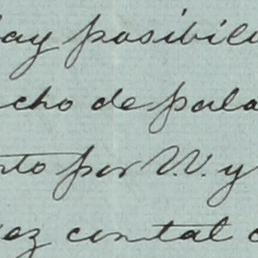 hay posibili
cho de pala
nto por V. y
ez con tal